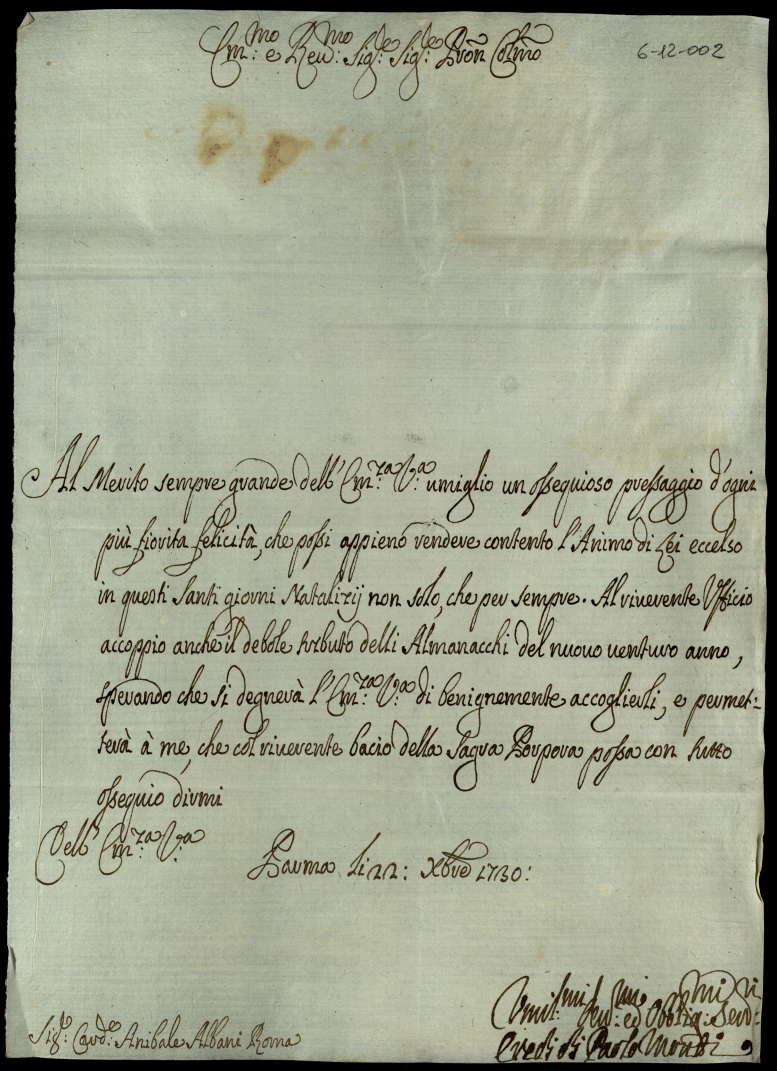 Em.mo e Rev.mo Sig.e Sig.e Pron Col.mo
6-12-002
Al Merito sempre grande dell' Em.za V.a umiglio un ossequioso pressaggio d'ogni
più fiorita felicità, che possi appieno rendere contento l'Animo di Lei eccelso
in questi Santi giorni Natalizij non solo, che per sempre. Al riverente Ufficio
accoppio anche il debole tributo delli Almanacchi del nuovo venturo anno,
sperando che si degnerà l'Em.za V.a di benignemente accoglierli, e permet-
terà à me, che col riverente bacio della Sagra Porpora possa con tutto
ossequio dirmi
Dell' Em.za V.a
Parma li 22: Xbre 1730:
Umil.mi Dev.mi ed Obblig.mi Serv.ri
Eredi di Paolo Monti
Sig.e Card.e Anibale Albani Roma